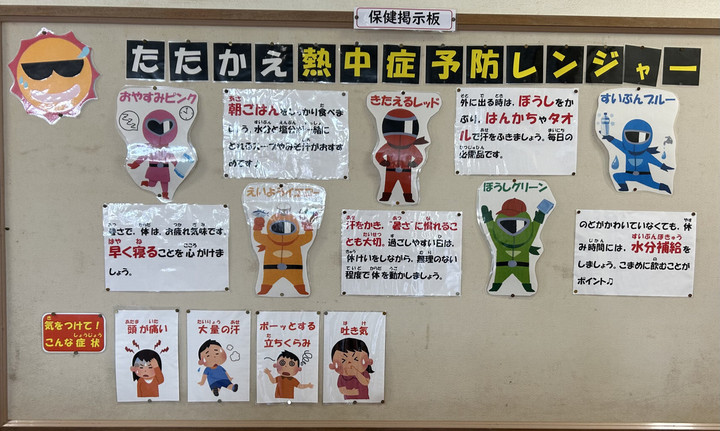 保健掲示板
たたかえ熱中症予防レンジャー
おやすみピンク
暑さで、体は、お疲れ気味です。
早く寝ることを心がけま
しょう。
朝ごはんをしっかり食べま
しょう。水分と塩分が一緒に
とれるスープやみそ汁がおすす
めです♪
えいよう
きたえるレッド
汗をかき、暑さに慣れるこ
とも大切。過ごしやすい日は、
休けいをしながら、無理のない
程度で体を動かしましょう。
外に出る時は、ぼうしをか
ぶり、はんかちやタオ
ルで汗をふきましょう。毎日の
必需品です。
ぼうしグリーン
すいぶんブルー
のどがかわいていなくても、休
み時間には、水分補給を
しましょう。こまめに飲むことが
ポイント♪
気をつけて!
こんな症状
頭が痛い
大量の汗
ボーッとする
立ちくらみ
吐き気